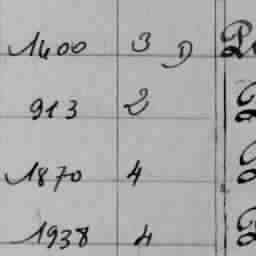 1400 3 D
913 2
1870 4
1938 4